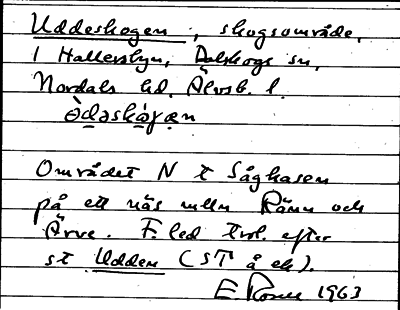 Uddeskogen, skogsområde,
i Hallersbyn, Dalskogs sn,
Nordals hd. Älvsb. l.
Området N t Såghasen
på ett näs mlln Rämn och
Ärve. F. led trol. efter
st Udden (ST å ek).
E 1963